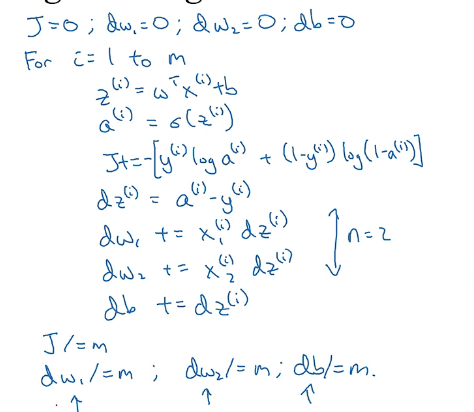 J=0 ; dw₁=0 ; dw₂=0 ; db=0
For i=1 to m
z⁽ⁱ⁾ = wᵀx⁽ⁱ⁾+b
a⁽ⁱ⁾ = σ(z⁽ⁱ⁾)
J+=-[y⁽ⁱ⁾ log a⁽ⁱ⁾ + (1-y⁽ⁱ⁾) log(1-a⁽ⁱ⁾)]
dz⁽ⁱ⁾ = a⁽ⁱ⁾-y⁽ⁱ⁾
dw₁ += x₁⁽ⁱ⁾ dz⁽ⁱ⁾
dw₂ += x₂⁽ⁱ⁾ dz⁽ⁱ⁾ n=2
db += dz⁽ⁱ⁾
J/=m
dw₁/=m ; dw₂/=m ; db/=m.